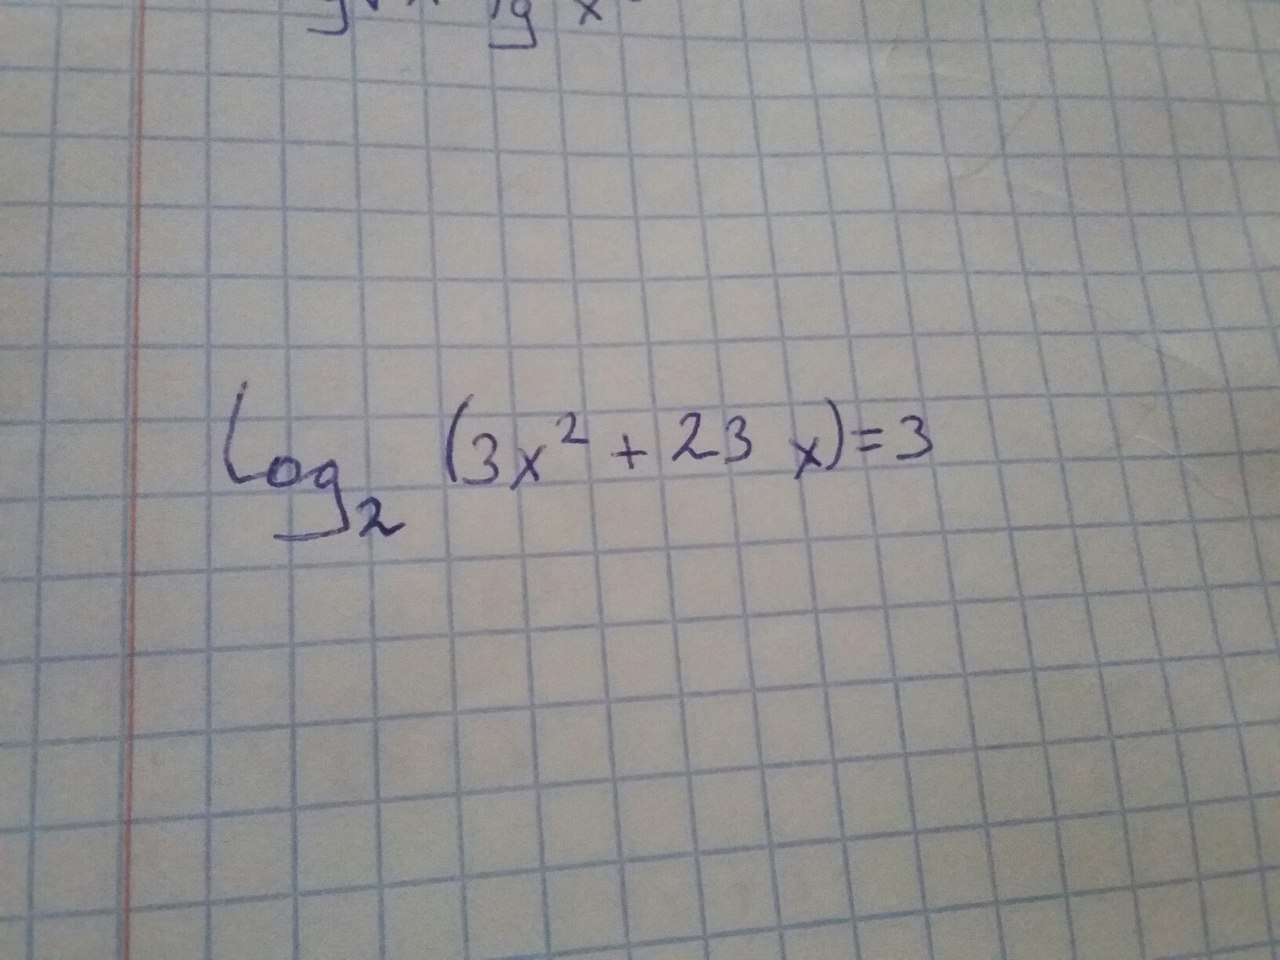 log₂ (3x² + 23 x) = 3